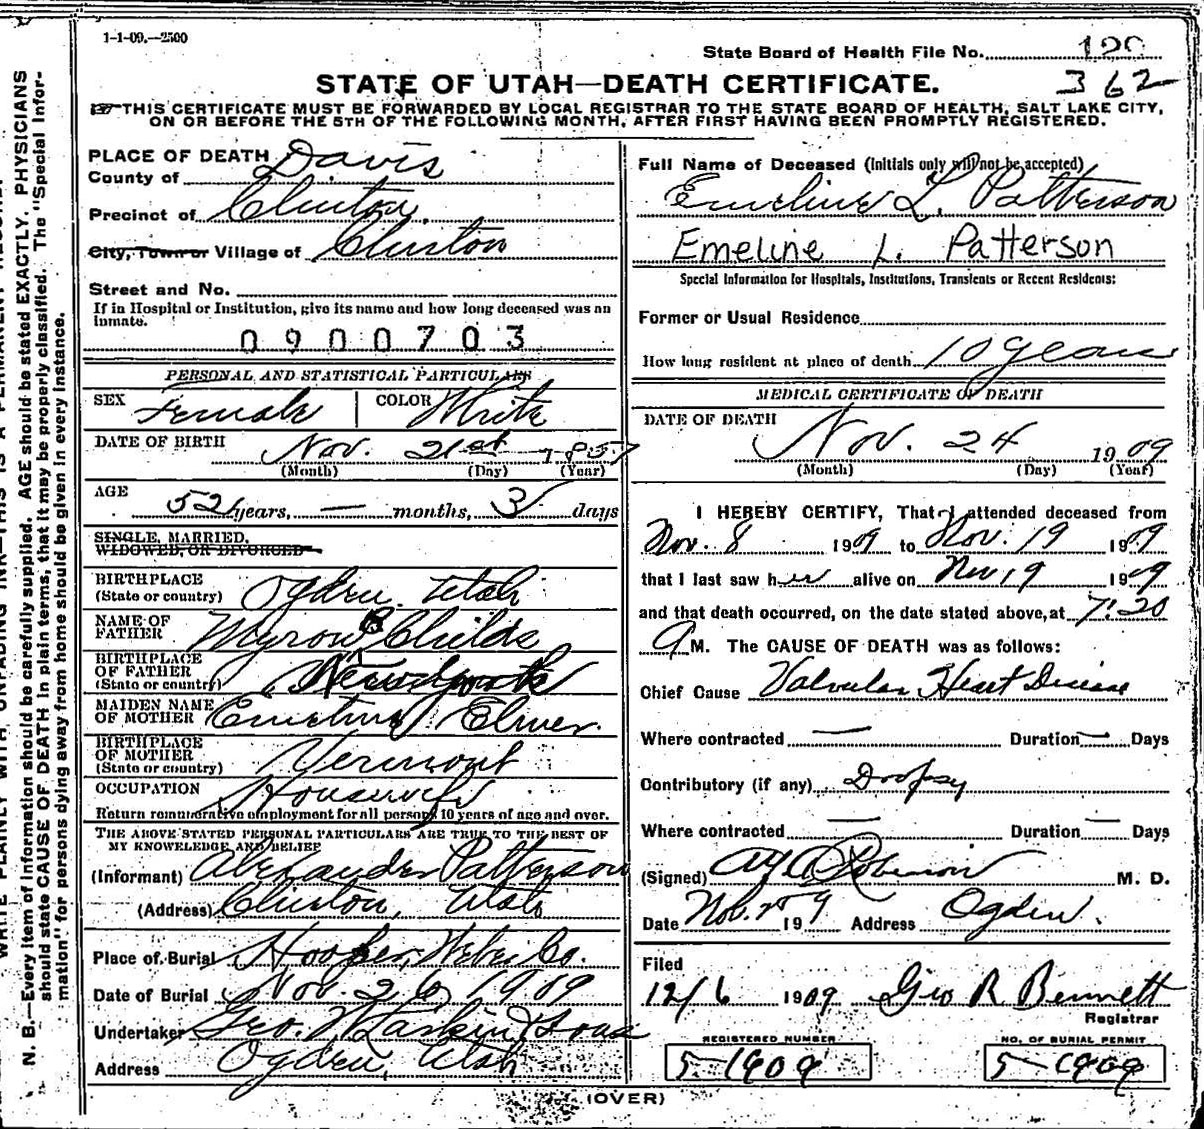 1-1-09.—2500
State Board of Health File No. 120
362
STATE OF UTAH—DEATH CERTIFICATE.
THIS CERTIFICATE MUST BE FORWARDED BY LOCAL REGISTRAR TO THE STATE BOARD OF HEALTH, SALT LAKE CITY,
ON OR BEFORE THE 5TH OF THE FOLLOWING MONTH, AFTER FIRST HAVING BEEN PROMPTLY REGISTERED.
PLACE OF DEATH
County of Davis
Precinct of Clinton
City, Town or Village of Clinton
Street and No.
If in Hospital or Institution, give its name and how long deceased was an
inmate.
0900703
PERSONAL AND STATISTICAL PARTICULARS
SEX Female COLOR White
DATE OF BIRTH Nov. 21st 1857
(Month) (Day) (Year)
AGE
52 years, — months, 3 days
SINGLE, MARRIED,
WIDOWED, OR DIVORCED
BIRTHPLACE
(State or country) Ogden Utah
NAME OF
FATHER Myron B Childs
BIRTHPLACE
OF FATHER
(State or country) New York
MAIDEN NAME
OF MOTHER Emeline Elmer
BIRTHPLACE
OF MOTHER
(State or country) Vermont
OCCUPATION Housewife
Return remunerative employment for all persons 10 years of age and over.
THE ABOVE STATED PERSONAL PARTICULARS ARE TRUE TO THE BEST OF
MY KNOWLEDGE AND BELIEF
(Informant) Alexander Patterson
(Address) Clinton, Utah
Place of Burial Hooper, Weber Co.
Date of Burial Nov. 26 1909
Undertaker Geo. W Larkin & Sons
Address Ogden, Utah
Full Name of Deceased (Initials only will not be accepted)
Emeline L. Patterson
Emeline L. Patterson
Special Information for Hospitals, Institutions, Transients or Recent Residents:
Former or Usual Residence
How long resident at place of death 10 years
MEDICAL CERTIFICATE OF DEATH
DATE OF DEATH
Nov. 24 1909
(Month) (Day) (Year)
I HEREBY CERTIFY, That I attended deceased from
Nov. 8 1909 to Nov. 19 1909
that I last saw her alive on Nov 19 1909
and that death occurred, on the date stated above, at 7:20
M. The CAUSE OF DEATH was as follows:
Chief Cause Valvular Heart Disease
Where contracted — Duration — Days
Contributory (if any) Dropsy
Where contracted — Duration — Days
(Signed) Robinson M. D.
Date Nov. 199 Address Ogden.
Filed
12/6 1909 Geo R Bennett
Registrar
REGISTERED NUMBER
5-1909
NO. OF BURIAL PERMIT
5-1909
(OVER)
N. B.—Every item of information should be carefully supplied. AGE should be stated EXACTLY. PHYSICIANS
should state CAUSE OF DEATH in plain terms, that it may be properly classified. The "Special Infor-
mation" for persons dying away from home should be given in every instance.